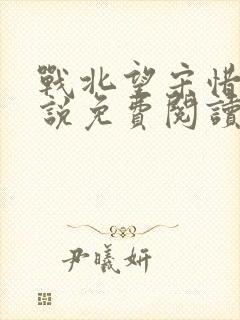 戰北望宋惜
說免費閱讀
尹曦妍